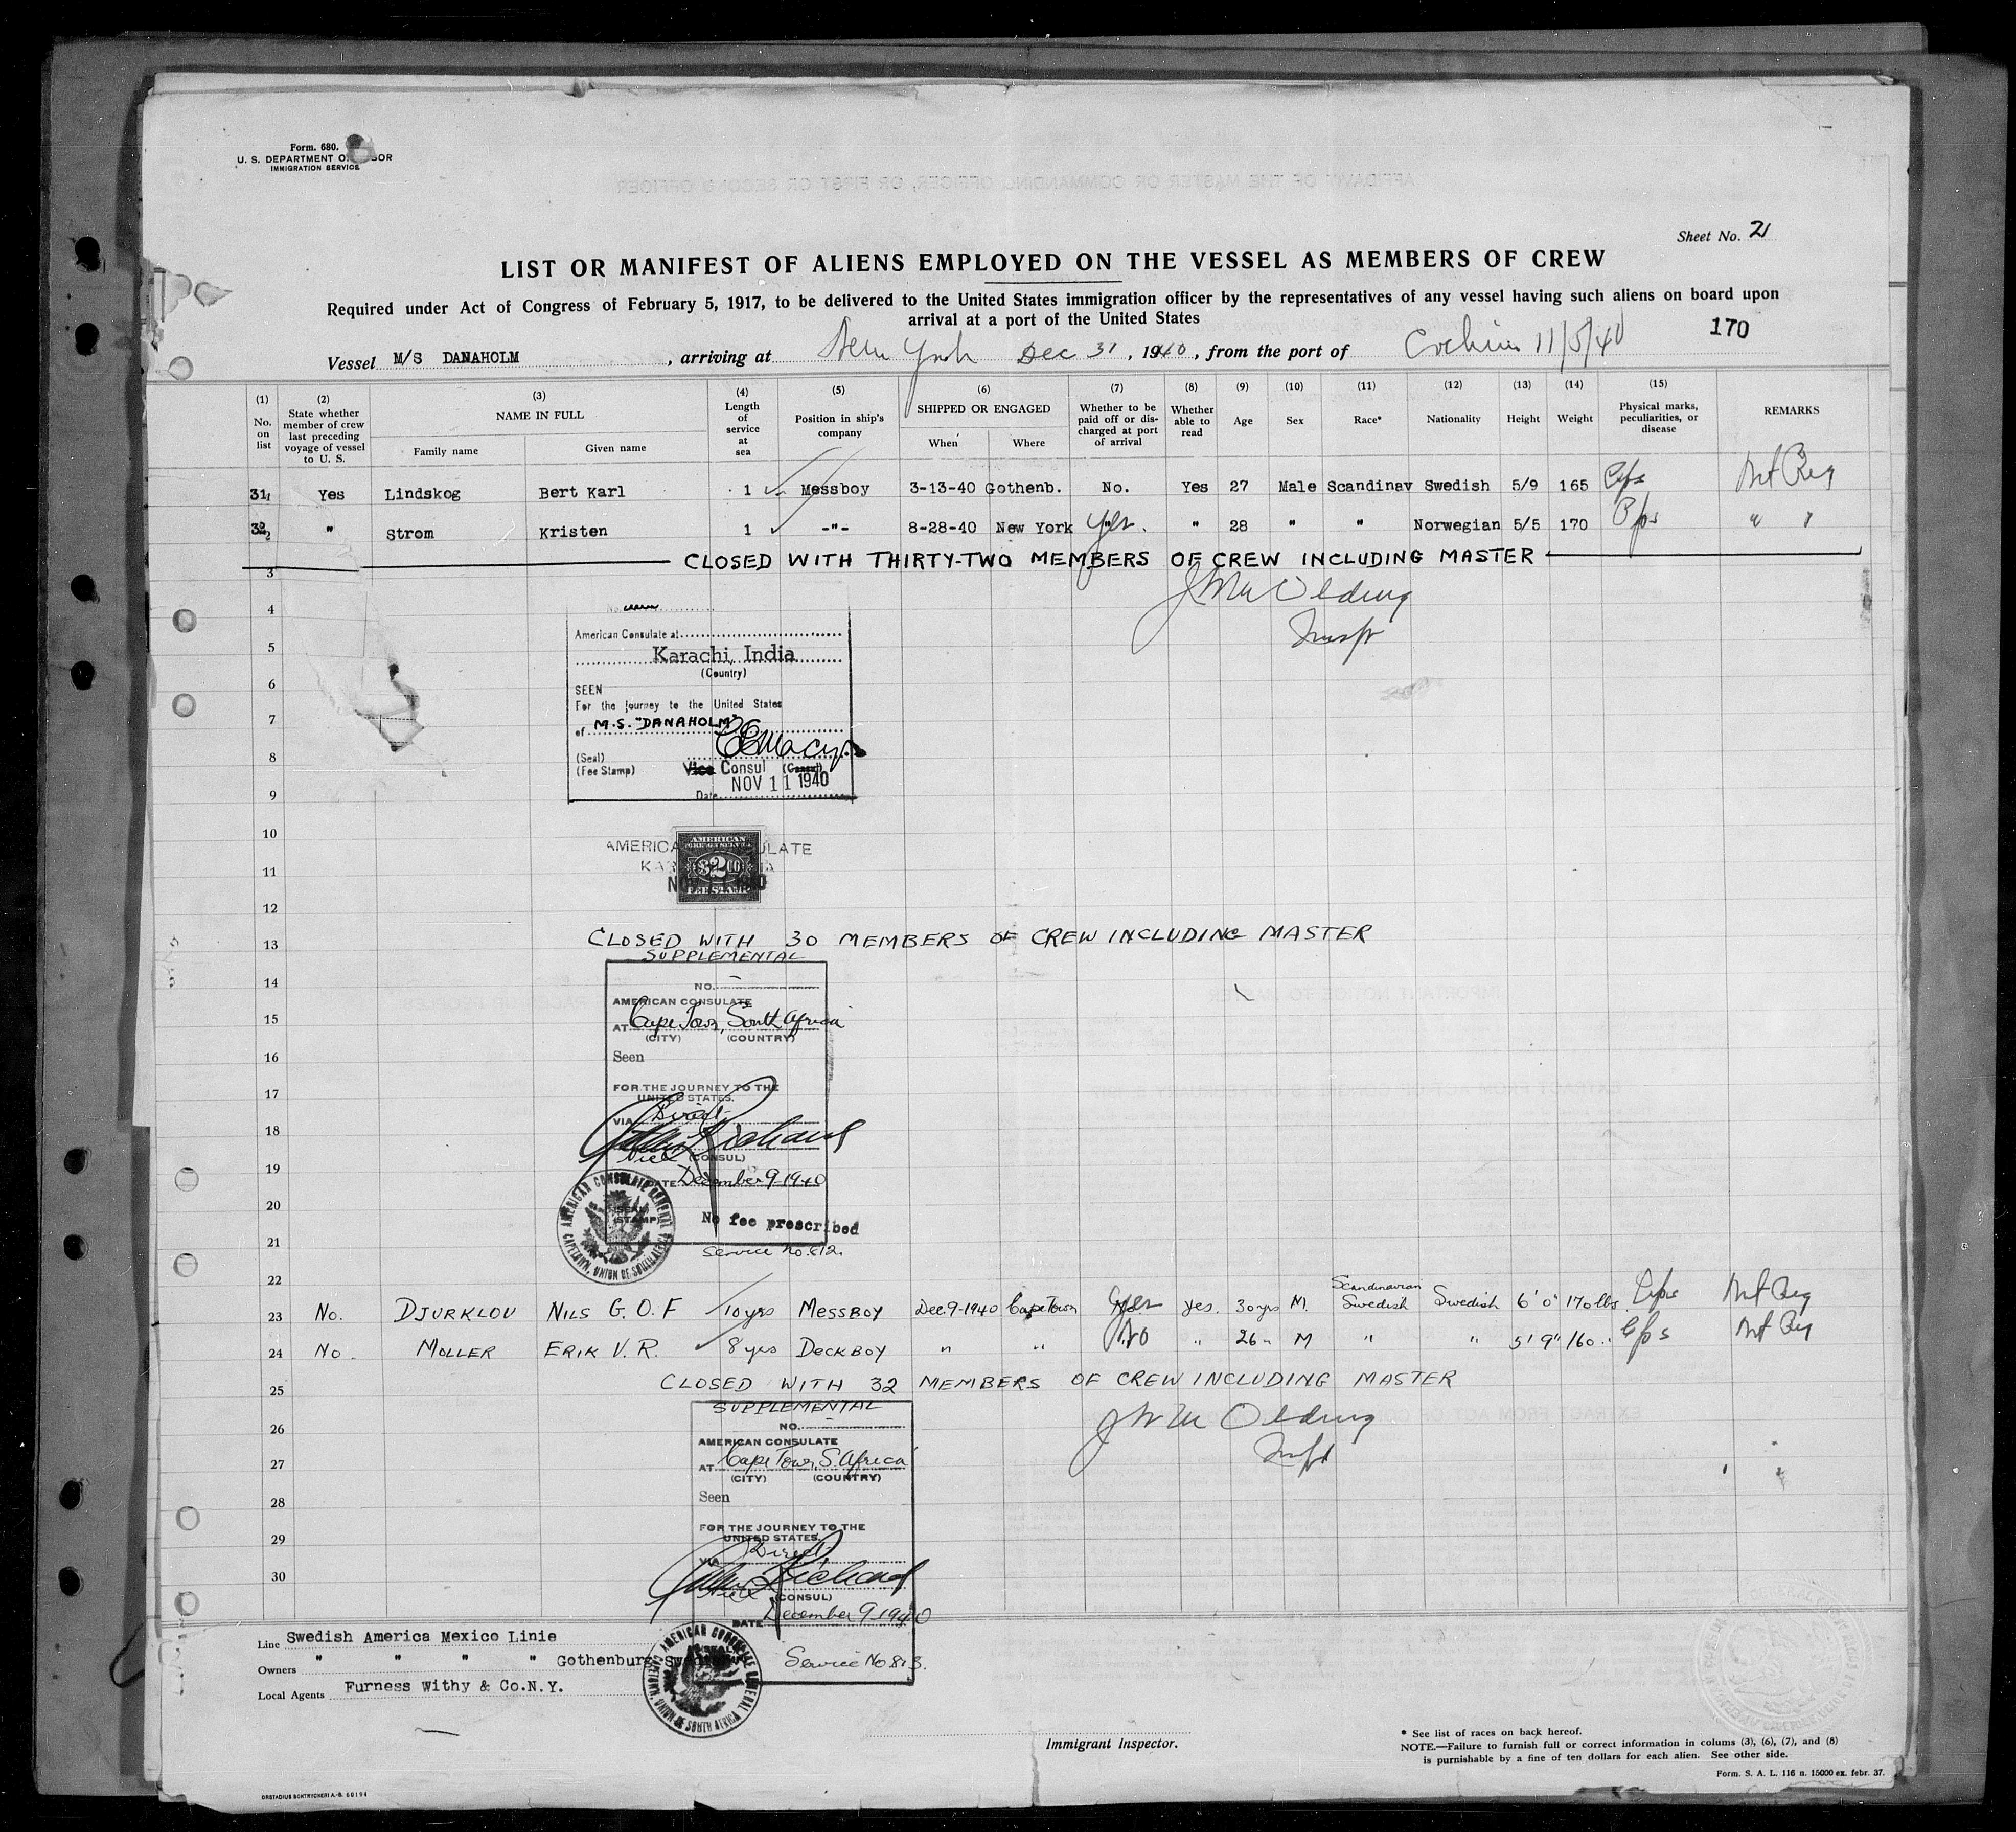 Form. 680.
U. S. DEPARTMENT OF LABOR
IMMIGRATION SERVICE
Sheet No. 2
LIST OR MANIFEST OF ALIENS EMPLOYED ON THE VESSEL AS MEMBERS OF CREW
Required under Act of Congress of February 5, 1917, to be delivered to the United States immigration officer by the representatives of any vessel having such aliens on board upon
arrival at a port of the United States
170
Vessel M/S DANAHOLM, arriving at New York Dec 31, 1940, from the port of Cochin 11/5/40
(1) No. on list
(2) State whether member of crew last preceding voyage of vessel to U. S.
(3) NAME IN FULL
Family name
Given name
(4) Length of service at sea
(5) Position in ship's company
(6) SHIPPED OR ENGAGED
When
Where
(7) Whether to be paid off or discharged at port of arrival
(8) Whether able to read
(9) Age
(10) Sex
(11) Race*
(12) Nationality
(13) Height
(14) Weight
(15) Physical marks, peculiarities, or disease
REMARKS
31 1 Yes Lindskog Bert Karl 1 Messboy 3-13-40 Gothenb. No. Yes 27 Male Scandinav Swedish 5/9 165
32 2 " Strom Kristen 1 -"- 8-28-40 New York Yes. " 28 " " Norwegian 5/5 170 " "
CLOSED WITH THIRTY-TWO MEMBERS OF CREW INCLUDING MASTER
3
4
5
6
7
8
9
10
11
12
13
14
15
16
17
18
19
20
21
22
No.
American Consulate at
Karachi, India
(Country)
SEEN
For the journey to the United States
of M.S. "DANAHOLM"
(Seal)
(Fee Stamp)
Vice Consul (General)
Date NOV 11 1940
AMERICAN CONSULATE
AMERICAN
FOREIGN SERVICE
$2.00
FEE STAMP
CLOSED WITH 30 MEMBERS OF CREW INCLUDING MASTER
SUPPLEMENTAL
NO. —
AMERICAN CONSULATE
AT Cape Town, South Africa
(CITY) (COUNTRY)
Seen
FOR THE JOURNEY TO THE
UNITED STATES.
VIA Direct
Vice (CONSUL)
DATE December 9-1940
(SEAL)
(STAMP)
No fee prescribed
Service No. 812.
AMERICAN CONSULATE GENERAL
CAPETOWN, UNION OF SOUTH AFRICA
23 No. DJURKLOU NILS G. O. F 10 yrs MESSBOY Dec. 9-1940 Cape Town Yes yes. 30 yrs M. Scandinavian Swedish Swedish 6' 0" 170 lbs.
24 No. MOLLER ERIK V. R. 8 yrs DECKBOY " " No " 26 " M " " 5' 9" 160 "
25
CLOSED WITH 32 MEMBERS OF CREW INCLUDING MASTER
26
27
28
29
30
SUPPLEMENTAL
NO. —
AMERICAN CONSULATE
AT Cape Town, S. Africa
(CITY) (COUNTRY)
Seen
FOR THE JOURNEY TO THE
UNITED STATES.
VIA Direct
Vice (CONSUL)
DATE December 9-1940
Service No 813.
AMERICAN CONSULATE GENERAL
CAPETOWN, UNION OF SOUTH AFRICA
Line Swedish America Mexico Linie
Owners " " " " Gothenburg Sweden
Local Agents Furness Withy & Co.N.Y.
Immigrant Inspector.
* See list of races on back hereof.
NOTE.—Failure to furnish full or correct information in colums (3), (6), (7), and (8)
is punishable by a fine of ten dollars for each alien. See other side.
Form. S. A. L. 116 n. 15000 ex. febr. 37.
ORSTADIUS BOKTRYCKERI A.-B. 60194